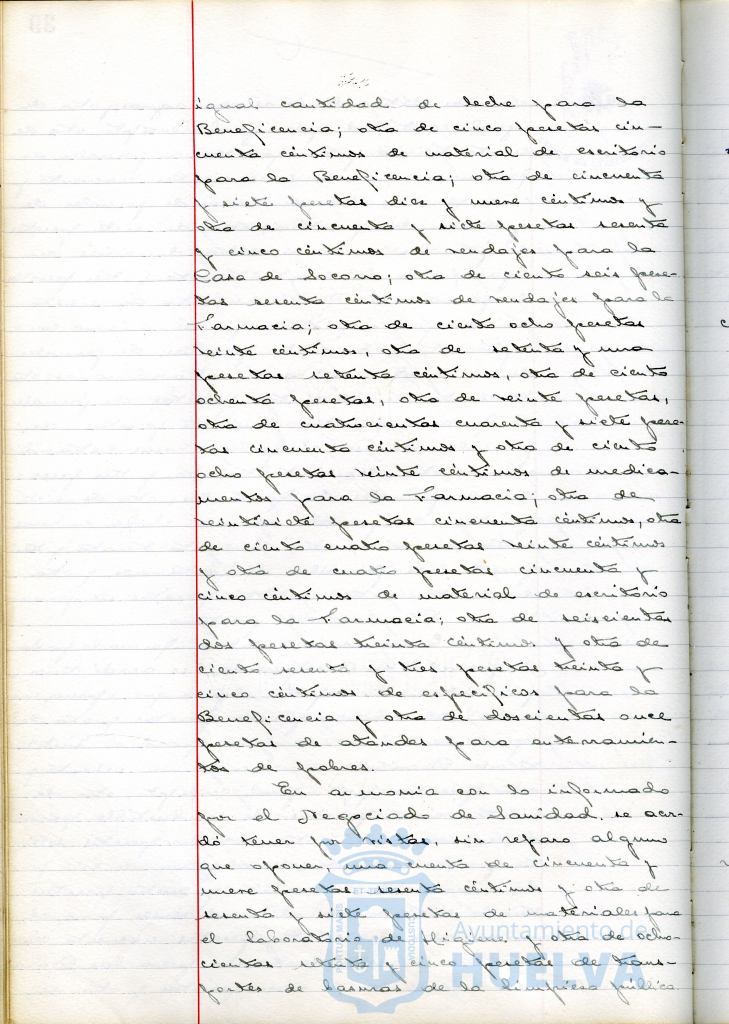 igual cantidad de leche para la
Beneficencia; otra de cinco pesetas cin-
cuenta céntimos de material de escritorio
para la Beneficencia; otra de cincuenta
y siete pesetas diez y nueve céntimos y
otra de cincuenta y siete pesetas sesenta
y cinco céntimos de vendajes para la
Casa de Socorro; otra de ciento seis pese-
tas sesenta céntimos de vendajes para la
Farmacia; otra de ciento ocho pesetas
veinte céntimos, otra de setenta y una
pesetas setenta céntimos, otra de ciento
ochenta pesetas, otra de veinte pesetas,
otra de cuatrocientas cuarenta y siete pese-
tas cincuenta céntimos y otra de ciento
ocho pesetas veinte céntimos de medica-
mentos para la Farmacia; otra de
veintisiete pesetas cincuenta céntimos, otra
de ciento cuatro pesetas veinte céntimos
y otra de cuatro pesetas cincuenta y
cinco céntimos de material de escritorio
para la Farmacia; otra de seiscientas
dos pesetas treinta céntimos y otra de
ciento sesenta y tres pesetas treinta y
cinco céntimos de específicos para la
Beneficencia y otra de doscientas once
pesetas de ataudes para enterramien-
tos de pobres.
En armonia con lo informado
por el Negociado de Sanidad, se acor-
dó tener por vistas, sin reparo alguno
que oponer, una cuenta de cincuenta y
nueve pesetas sesenta céntimos y otra de
sesenta y siete pesetas de materiales para
el laboratorio de Higiene y otra de ocho-
cientas setenta y cinco pesetas de trans-
portes de basuras de la limpieza pública.
Ayuntamiento de
HUELVA